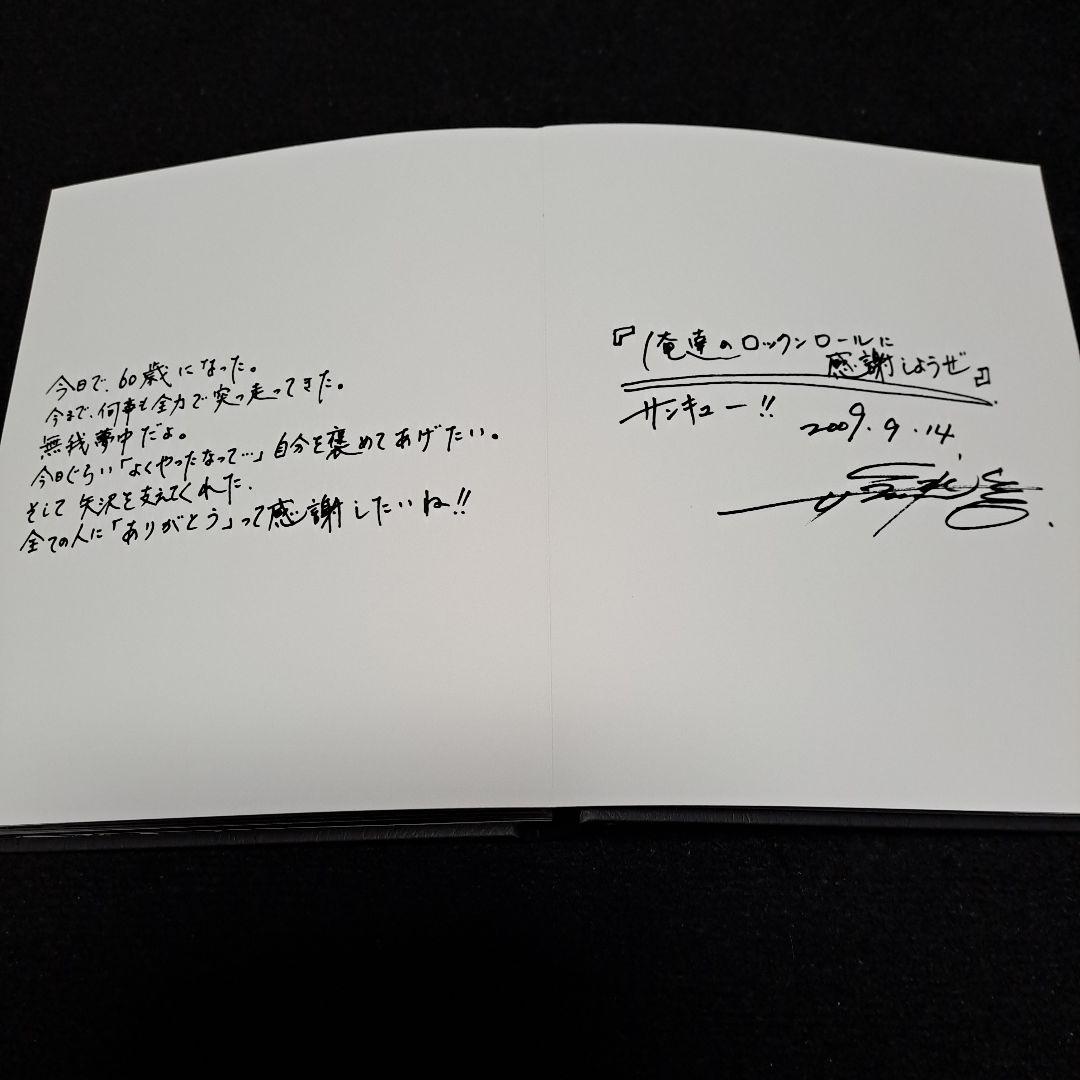 今日で、60歳になった。
今まで、何事も全力で突っ走ってきた。
無我夢中だよ。
今日ぐらい「よくやったなって…」自分を褒めてあげたい。
そして矢沢を支えてくれた、
全ての人に「ありがとう」って感謝したいね!!
『俺達のロックンロールに
感謝しようぜ』
サンキュー!!
2009.9.14